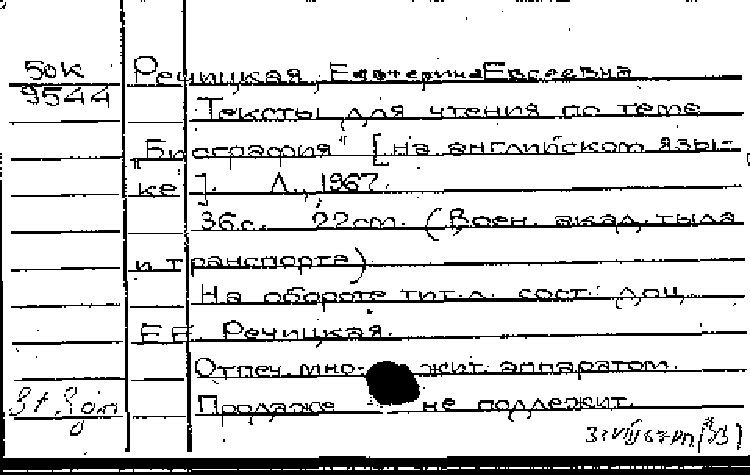 50к Речицкая, Екатерина Евсеевна
9544 Тексты для чтения по теме
"Биография" [на английском язы-
ке]. Л., 1967.
36с. 22cm. (Воен. акад. тыла
и транспорта)
На обороте тит. л. сост.: доц.
Е.Е. Речицкая.
Отпеч. множит. аппаратом.
Продаже не подлежит.